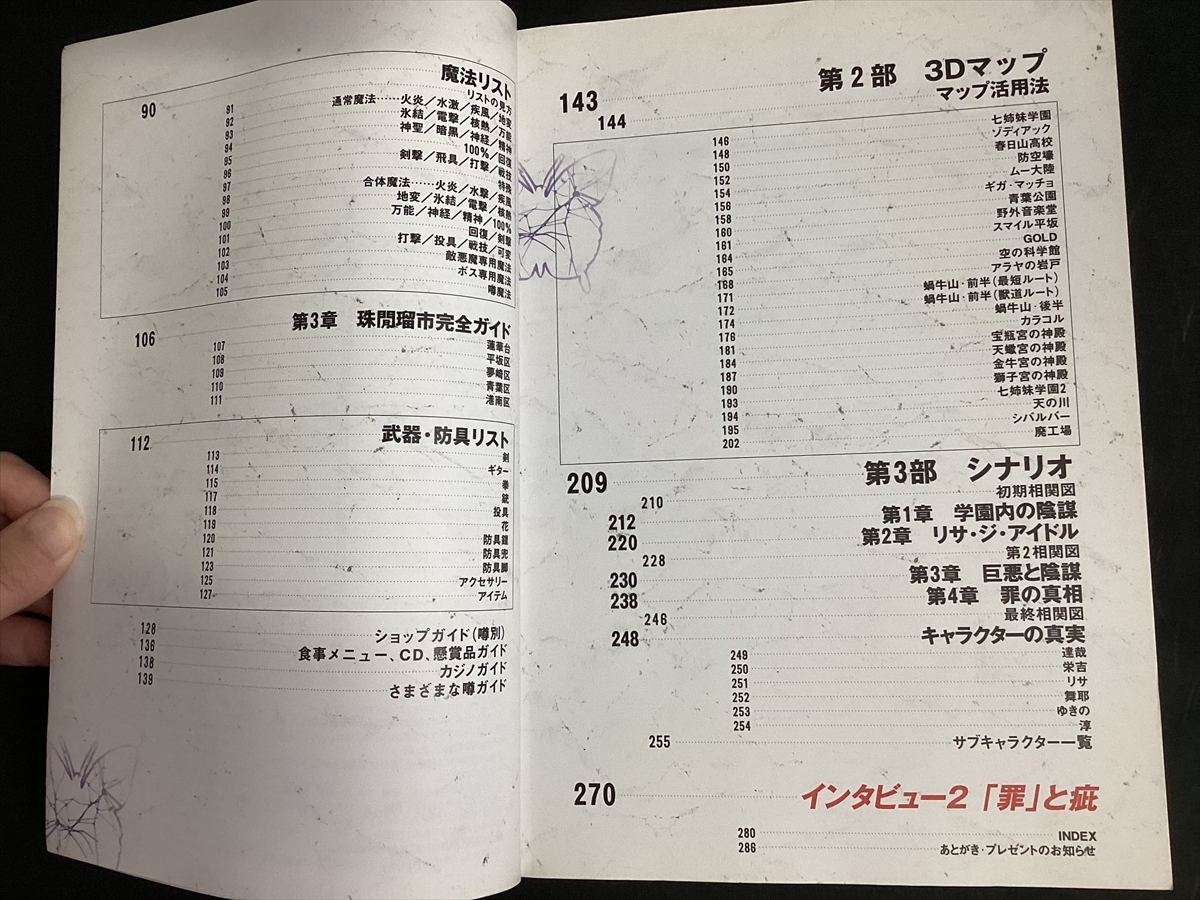 魔法リスト
90
リストの見方
91
通常魔法……火炎／水激／疾風／地変
92
氷結／電撃／核熱／万能
93
神聖／暗黒／神経／精神
94
100%／回復
95
剣撃／飛具／打撃／戦技
96
特殊
97
合体魔法……火炎／水撃／疾風
98
地変／氷結／電撃／核熱
99
万能／神経／精神／100%
100
回復／剣撃
101
打撃／投具／戦技／可変
102
敵悪魔専用魔法
103
ボス専用魔法
104
噂魔法
105
第3章　珠閒瑠市完全ガイド
106
蓮華台
107
平坂区
108
夢崎区
109
青葉区
110
港南区
111
武器・防具リスト
112
剣
113
ギター
114
拳
115
銃
117
投具
118
花
119
防具鎧
120
防具兜
121
防具脚
123
アクセサリー
125
アイテム
127
128
ショップガイド（噂別）
136
食事メニュー、CD、懸賞品ガイド
138
カジノガイド
139
さまざまな噂ガイド
第2部　3Dマップ
143
マップ活用法
144
七姉妹学園
146
ゾディアック
148
春日山高校
150
防空壕
152
ムー大陸
154
ギガ・マッチョ
156
青葉公園
158
野外音楽堂
160
スマイル平坂
161
GOLD
164
空の科学館
165
アラヤの岩戸
168
蝸牛山・前半（最短ルート）
171
蝸牛山・前半（獣道ルート）
172
蝸牛山・後半
174
カラコル
176
宝瓶宮の神殿
181
天蠍宮の神殿
184
金牛宮の神殿
187
獅子宮の神殿
190
七姉妹学園2
193
天の川
194
シバルバー
195
廃工場
202
第3部　シナリオ
209
初期相関図
210
第1章　学園内の陰謀
212
第2章　リサ・ジ・アイドル
220
第2相関図
228
第3章　巨悪と陰謀
230
第4章　罪の真相
238
最終相関図
246
キャラクターの真実
248
達哉
249
栄吉
250
リサ
251
舞耶
252
ゆきの
253
淳
254
サブキャラクター一覧
255
270
インタビュー2「罪」と疵
280
INDEX
286
あとがき・プレゼントのお知らせ